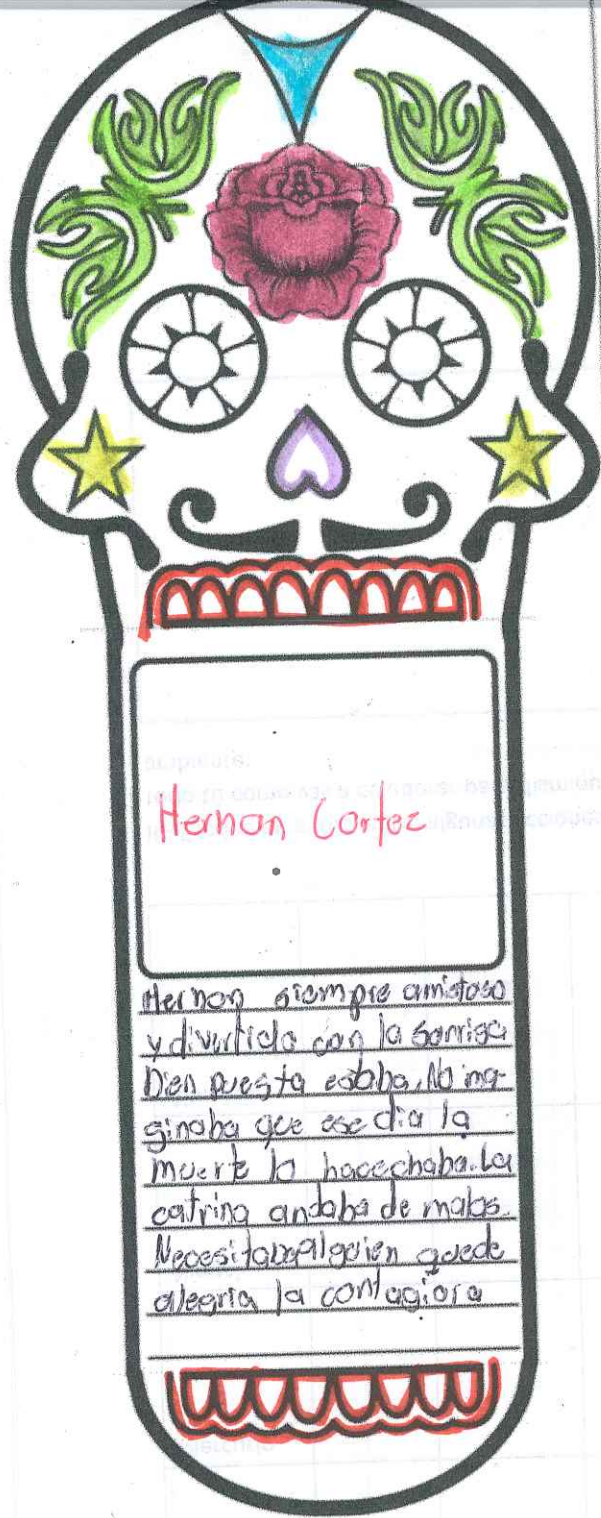 Hernan Cortez
Hernan siempre amistoso
y divertido con la sonrisa
bien puesta estaba. No ima-
ginaba que ese dia la
muerte lo hacechaba. La
catrina andaba de malas.
Necesitaba alguien que de
alegria la contagiara